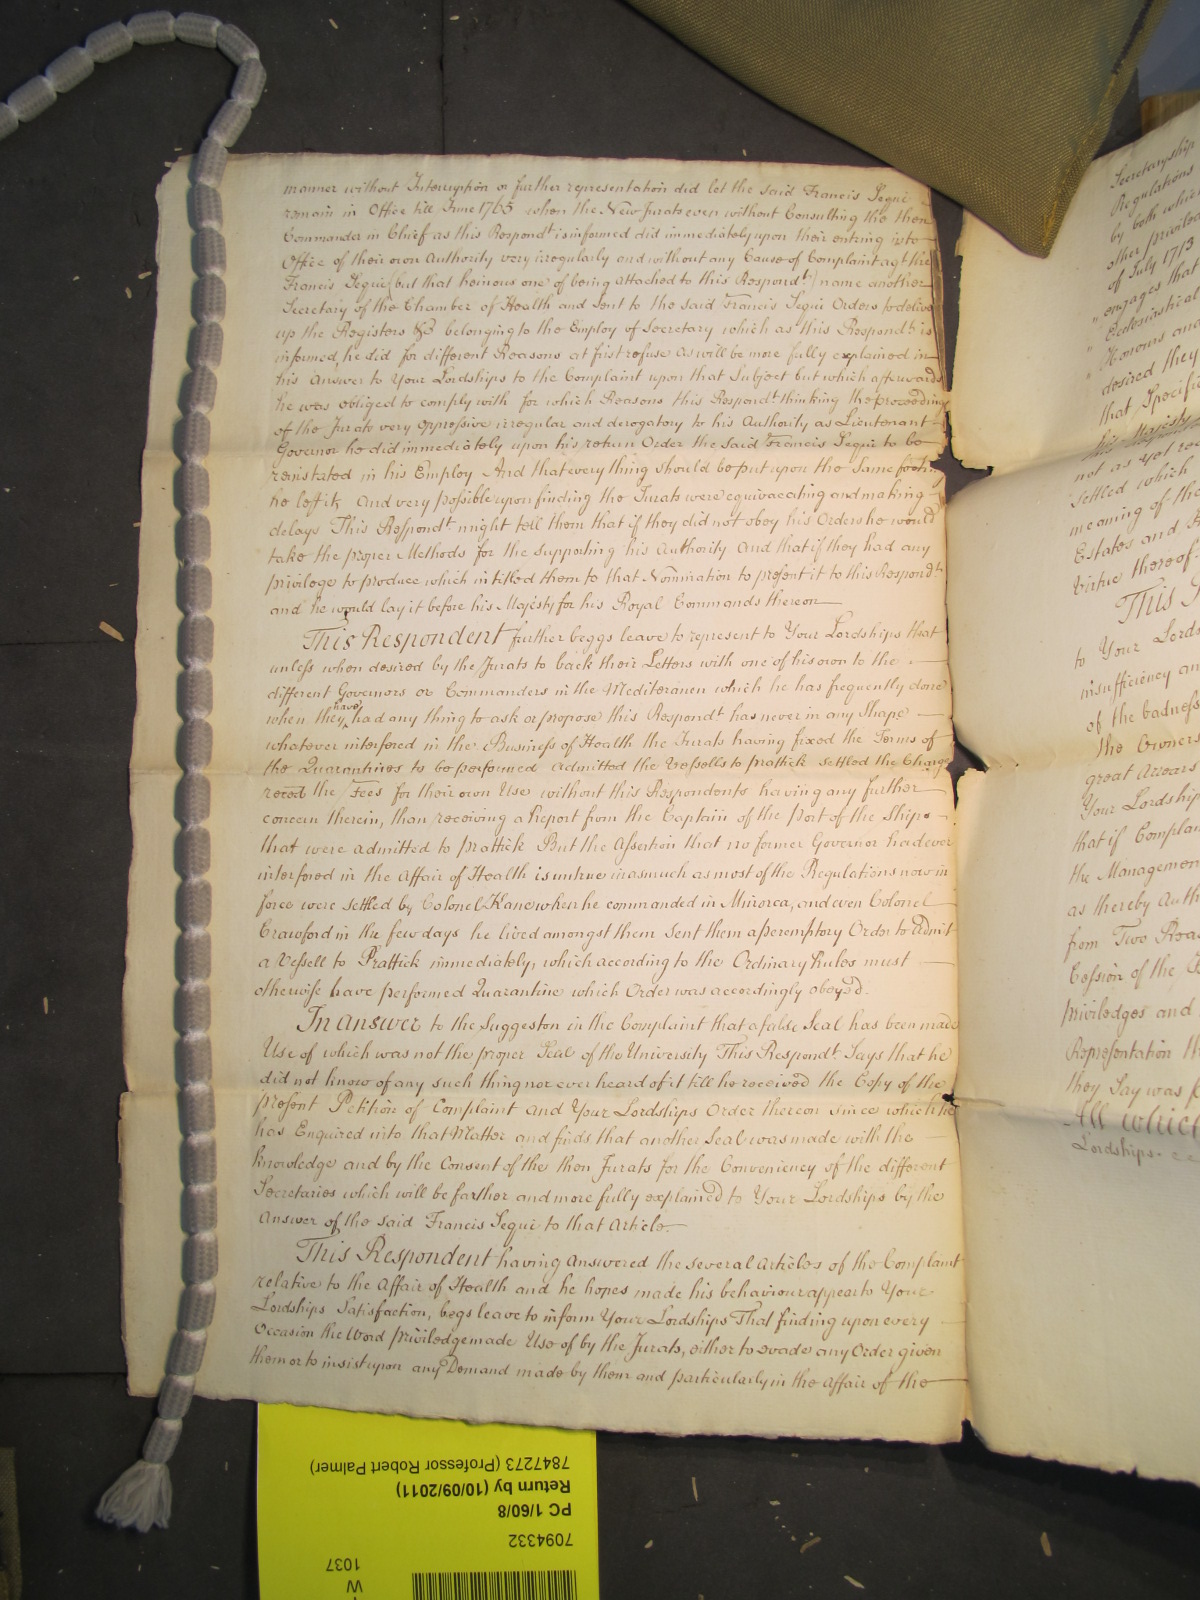 manner without Interruption or further representation did let the said Francis Segui
remain in Office till June 1765 when the New Jurats even without Consulting the then
Commander in Chief as this Respondt. is informed did immediately upon their entring into
Office of their own Authority very irregularly and without any Cause of Complaint agt. the
Francis Segui (but that heinous one of being Attached to this Respondt.) name another
Secretary of the Chamber of Health and sent to the said Francis Segui Orders to deliver
up the Registers &c belonging to the Employ of Secretary which as this Respondt. is
informed, he did for different Reasons at first refuse as will be more fully explained in
his Answer to Your Lordships to the Complaint upon that Subject but which afterwards
he was obliged to comply with for which Reasons this Respondt. thinking the proceeding
of the Jurats very oppressive irregular and derogatory to his Authority as Lieutenant
Governor he did immediately upon his return Order the said Francis Segui to be
reinstated in his Employ And that every thing should be put upon the same footing
he left it, And very possible upon finding the Jurats were equivocating and making
delays This Respondt. might tell them that if they did not obey his Orders he would
take the proper Methods for the supporting his Authority and that if they had any
privilege to produce which intitled them to that Nomination to present it to this Respondt.
and he would lay it before his Majesty for his Royal Commands thereon
This Respondent further beggs leave to represent to Your Lordships that
unless when desired by the Jurats to back their Letters with one of his own to the
different Governors or Commanders in the Mediteranen which he has frequently done
when they have had any thing to ask or propose this Respondt. has never in any Shape
whatever interfered in the Business of Health the Jurats having fixed the Terms of
the Quarantines to be performed admitted the Vessells to prattick settled the Charge
reced the Fees for their own Use without this Respondents having any further
concern therein, than receiving a Report from the Captain of the Port of the Ships
that were admitted to prattick But the Assertion that no former Governor had ever
interfered in the Affair of Health is untrue inasmuch as most of the Regulations now in
force were settled by Colonel Kane when he commanded in Minorca, and even Colonel
Crawford in the few days he lived amongst them sent them a peremptory Order to Admit
a Vessell to Prattick immediately, which according to the Ordinary Rules must
otherwise have performed Quarantine which Order was accordingly obeyed.
In Answer to the Suggeston in the Complaint that a false Seal has been made
Use of which was not the proper Seal of the University This Respondt. Says that he
did not know of any such thing nor ever heard of it till he received the Copy of the
present Petition of Complaint and Your Lordships Order thereon since which he
has Enquired into that Matter and finds that another Seal was made with the
knowledge and by the Consent of the then Jurats for the Conveniency of the different
Secretaries which will be farther and more fully explained to Your Lordships by the
Answer of the said Francis Segui to that Article.
This Respondent having Answered the several Articles of the Complaint
relative to the Affair of Health and he hopes made his behaviour appear to Your
Lordships Satisfaction, begs leave to inform Your Lordships That finding upon every
Occasion the Word priviledge made Use of by the Jurats, either to evade any Order given
them or to insist upon any Demand made by them and particularly in the Affair of the
Secretaryship
Regulations
by both which
other privile
of July 1713
" engages that
" Ecclesiastical
" Honours and
desired they
that Specifi
his Majesty
not as yet
settled which
meaning of the
Estates and
Virtue thereof
This
to Your Lords
insufficiency an
of the badness
the Owners
great Arrears
Your Lordship
that if Complan
the Management
as thereby Auth
from Two Rea
Cession of the
priviledges and
Representation th
they Say was
All which
Lordships
7847273 (Professor Robert Palmer)
Return by (10/09/2011)
PC 1/60/8
7094332
1037
W